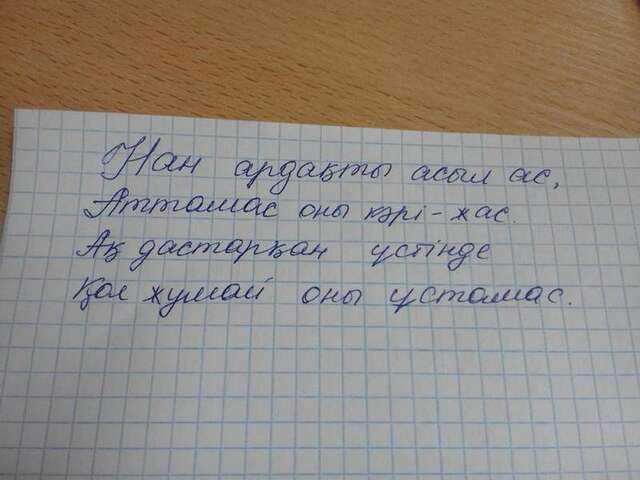 Нан ардақты асыл ас,
Аттамас оны кәрі-жас.
Ақ дастарқан үстінде
Қол жумай оны ұстамас.